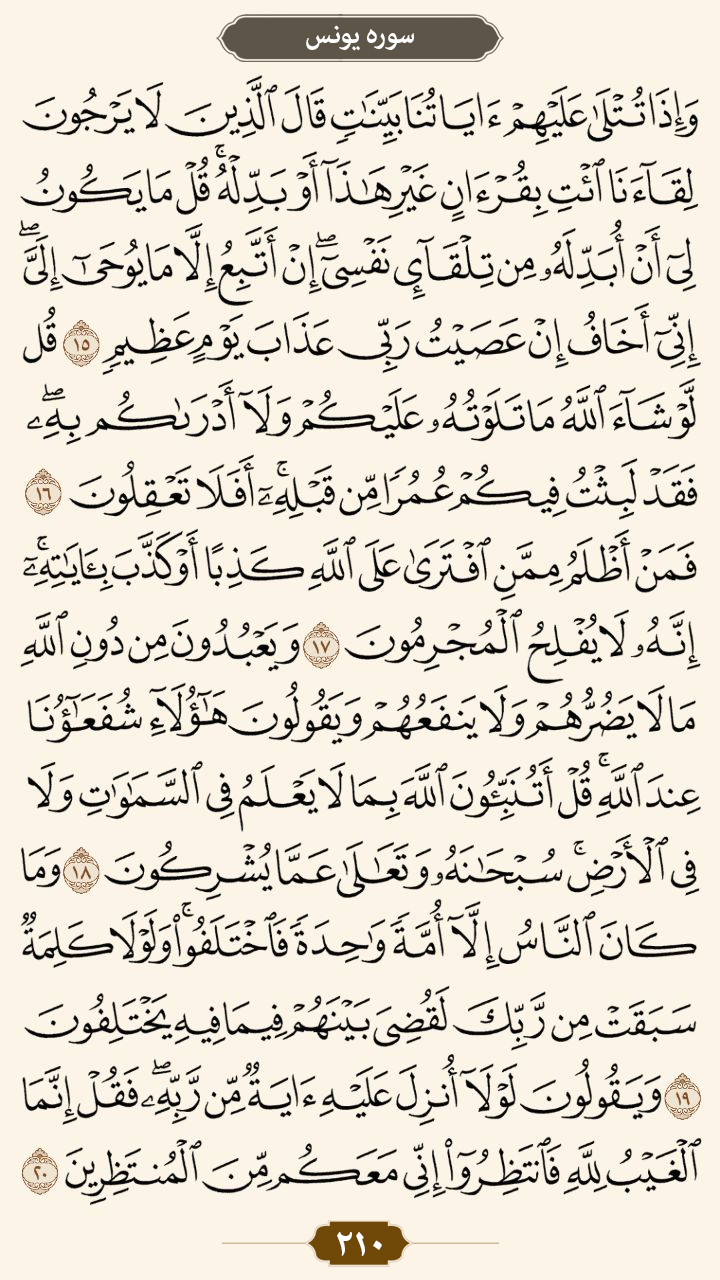 سوره یونس
وَإِذَا تُتْلَىٰ عَلَيْهِمْ ءَايَاتُنَا بَيِّنَٰتٍ قَالَ ٱلَّذِينَ لَا يَرْجُونَ
لِقَآءَنَا ٱئْتِ بِقُرْءَانٍ غَيْرِ هَٰذَآ أَوْ بَدِّلْهُ ۚ قُلْ مَا يَكُونُ
لِىٓ أَنْ أُبَدِّلَهُۥ مِن تِلْقَآئِ نَفْسِىٓ ۖ إِنْ أَتَّبِعُ إِلَّا مَا يُوحَىٰٓ إِلَىَّ ۖ
إِنِّىٓ أَخَافُ إِنْ عَصَيْتُ رَبِّى عَذَابَ يَوْمٍ عَظِيمٍ ١٥ قُل
لَّوْ شَآءَ ٱللَّهُ مَا تَلَوْتُهُۥ عَلَيْكُمْ وَلَآ أَدْرَىٰكُم بِهِۦ ۖ
فَقَدْ لَبِثْتُ فِيكُمْ عُمُرًا مِّن قَبْلِهِۦٓ ۚ أَفَلَا تَعْقِلُونَ ١٦
فَمَنْ أَظْلَمُ مِمَّنِ ٱفْتَرَىٰ عَلَى ٱللَّهِ كَذِبًا أَوْ كَذَّبَ بِـَٔايَٰتِهِۦٓ ۚ
إِنَّهُۥ لَا يُفْلِحُ ٱلْمُجْرِمُونَ ١٧ وَيَعْبُدُونَ مِن دُونِ ٱللَّهِ
مَا لَا يَضُرُّهُمْ وَلَا يَنفَعُهُمْ وَيَقُولُونَ هَٰٓؤُلَآءِ شُفَعَٰٓؤُنَا
عِندَ ٱللَّهِ ۚ قُلْ أَتُنَبِّـُٔونَ ٱللَّهَ بِمَا لَا يَعْلَمُ فِى ٱلسَّمَٰوَٰتِ وَلَا
فِى ٱلْأَرْضِ ۚ سُبْحَٰنَهُۥ وَتَعَٰلَىٰ عَمَّا يُشْرِكُونَ ١٨ وَمَا
كَانَ ٱلنَّاسُ إِلَّآ أُمَّةً وَٰحِدَةً فَٱخْتَلَفُوا۟ ۚ وَلَوْلَا كَلِمَةٌ
سَبَقَتْ مِن رَّبِّكَ لَقُضِىَ بَيْنَهُمْ فِيمَا فِيهِ يَخْتَلِفُونَ
١٩ وَيَقُولُونَ لَوْلَآ أُنزِلَ عَلَيْهِ ءَايَةٌ مِّن رَّبِّهِۦ ۖ فَقُلْ إِنَّمَا
ٱلْغَيْبُ لِلَّهِ فَٱنتَظِرُوٓا۟ إِنِّى مَعَكُم مِّنَ ٱلْمُنتَظِرِينَ ٢٠
٢١٠